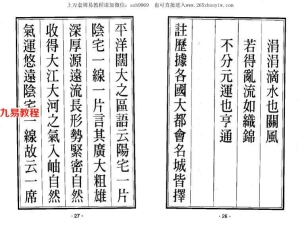 涓涓滴水也關風
若得亂流如織錦
不分元運也亨通
註歷據各國大都會名城皆擇
- 26 -
平洋闊大之區語云陽宅一片
陰宅一線一片言其廣大粗雄
深厚源遠流長形勢緊密自然
收得大江大河之氣入岫自然
氣運悠遠陰宅一線故云一席
- 27 -
九易教程